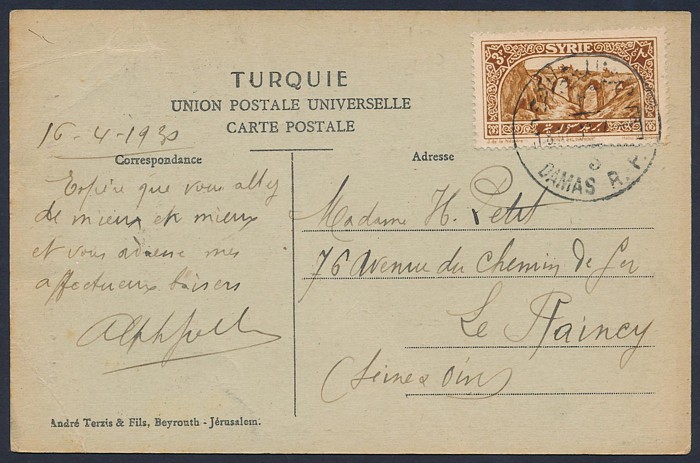 TURQUIE
UNION POSTALE UNIVERSELLE
CARTE POSTALE
SYRIE
3P
DAMAS R.P.
16-4-1930
Correspondance
Adresse
Espère que vous allez
de mieux en mieux
et vous adresse mes
affectueux baisers
Madame H. Petit
76 Avenue du Chemin de fer
Le Raincy
(Seine & Oise)
André Terzis & Fils, Beyrouth - Jérusalem.